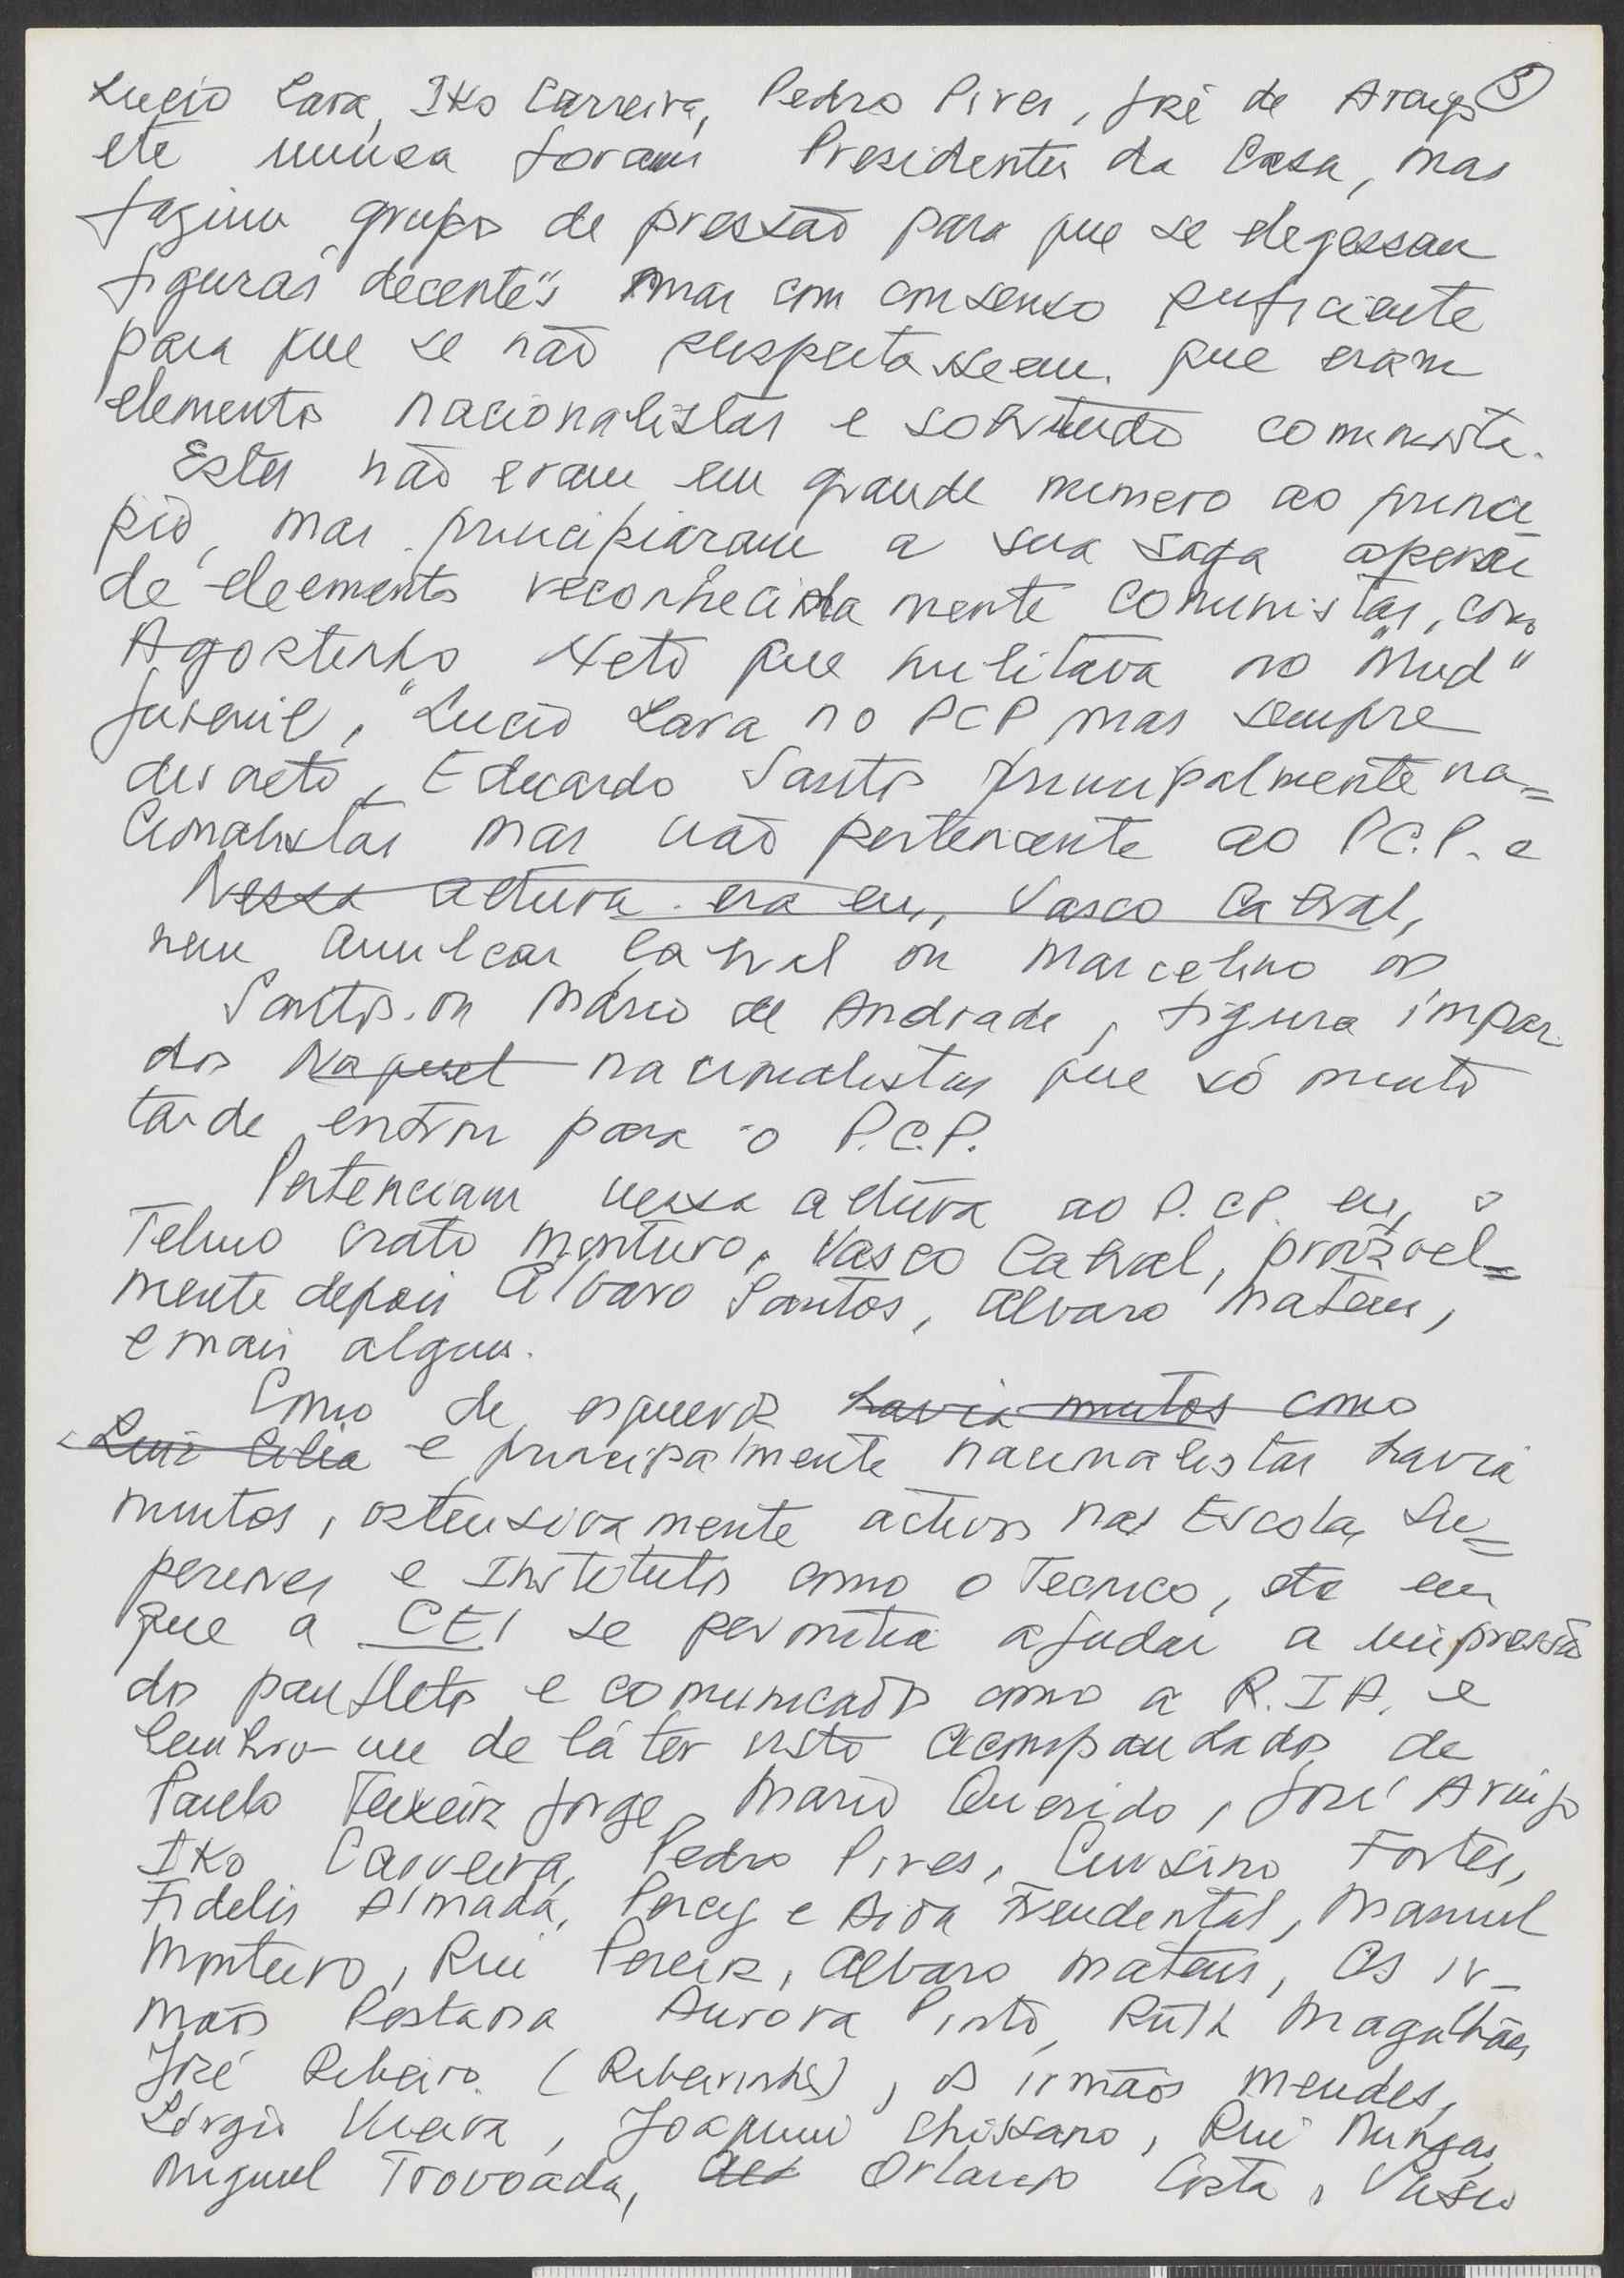 Lucio Lara, Iko Carreira, Pedro Pires, José de Araujo 5
etc nunca foram Presidentes da Casa, mas
faziam grupos de pressão para que se elegessem
figuras "decentes" mas com consenso suficiente
para que se não suspeitassem que eram
elementos nacionalistas e sobretudo comunista.
Estes não eram em grande numero ao princi_
pio, mas principiaram a sua saga apenas
de elementos reconhecidamente comunistas, como
Agostinho Neto que militava no "Mud"
Juvenil, Lucio Lara no PCP mas sempre
discreto, Eduardo Santos principalmente na=
cionalistas mas não pertencente ao P.C.P. e
Nessa altura era eu, Vasco Cabral,
nem Amilcar Cabral ou Marcelino os
Santos ou Mário de Andrade, figura impar
dos Naquel nacionalistas que só muito
tarde entrou para o P.C.P.
Pertenciam nessa altura ao P.C.P. eu, o
Telmo Crato Monteiro, Vasco Cabral, provável=
mente depois Alvaro Santos, Alvaro Mateus,
e mais alguns.
Como de esquerda havia muitos como
Luiz Cilia e principalmente nacionalistas havia
muitos, ostensivamente activos nas Escolas Su=
periores e Institutos como o Tecnico, etc em
que a CEI se permitia ajudar a impressão
dos panfletos e comunicados como a R.I.A. e
lembro-me de lá ter visto acompanhados de
Paulo Teixeira Jorge, Mario Querido, José Araujo
Iko Carreira, Pedro Pires, Corsino Fortes,
Fidelis Almada, Percy e Aida Freudental, Manuel
Monteiro, Rui Pereira, Alvaro Mateus, Os ir_
mãos Pestana Aurora Pinto, Ruth Magalhães
José Ribeiro (Ribeirinho), os irmãos Mendes,
Sérgio Vieira, Joaquim Chissano, Rui Mingas,
Miguel Trovoada, Orlando Costa, Vasco